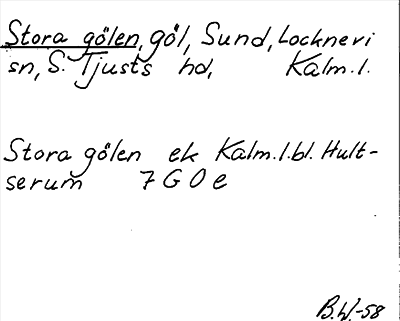 Stora gölen, göl, Sund, Locknevi
sn, S. Tjusts hd, Kalm. l.
Stora gölen ek Kalm. l. bl. Hult-
serum 7 G O e
B.W.-58